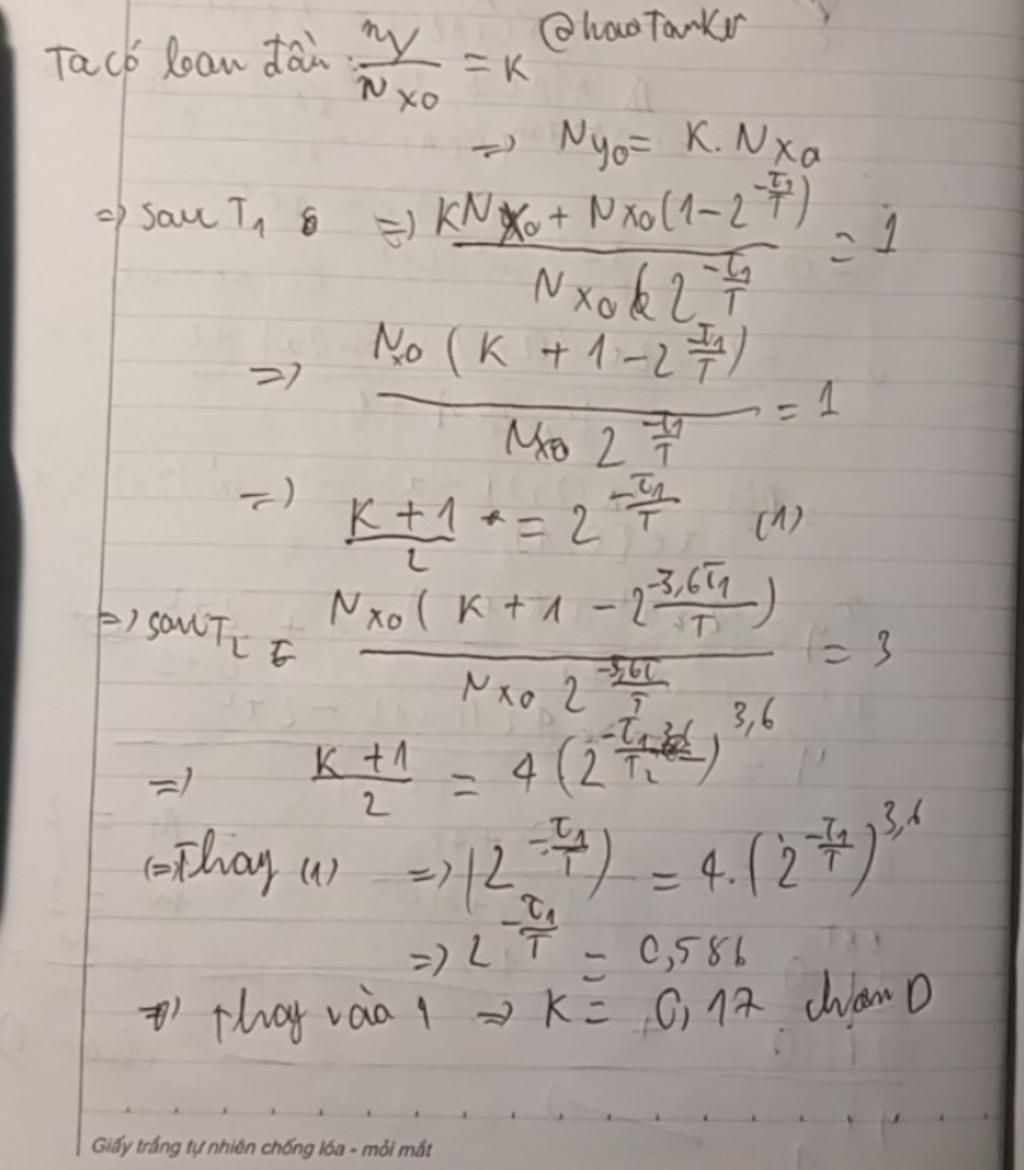 @haoTanker
Ta có ban đầu: ny/Nx0 = K
=> Ny0 = K. Nx0
=> sau T1 => (KNx0 + Nx0(1-2^(-T1/T)))/(Nx0 2^(-T1/T)) = 1
=> (Nx0 (K + 1 - 2^(-T1/T)))/(Nx0 2^(-T1/T)) = 1
=> (K + 1)/2 = 2^(-T1/T) (1)
=> sau T2 (Nx0( K + 1 - 2^(-3,6T1/T)))/(Nx0 2^(-3,6T/T)) = 3
=> (K + 1)/2 = 4 (2^(-T1/T2))^3,6
Thay (1) => (2^(-T1/T)) = 4. (2^(-T1/T))^3,6
=> 2^(-T1/T) = 0,586
=> thay vào 1 => K = 0,17 chọn D
Giấy trắng tự nhiên chống lóa - mỏi mắt